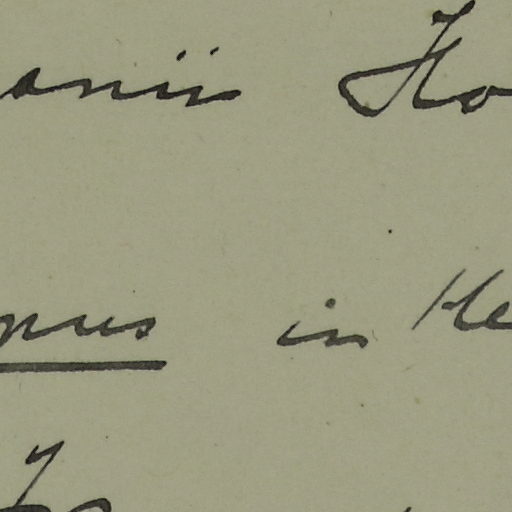 anii Ho
pus in He